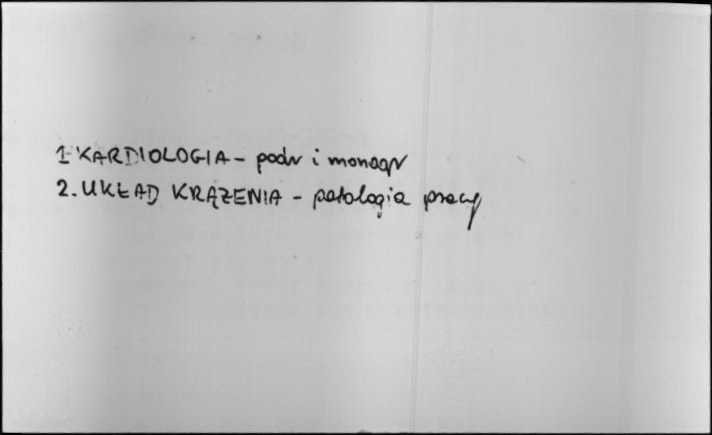 1 KARDIOLOGIA - podr i monogr
2. UKŁAD KRĄŻENIA - patologia pracy